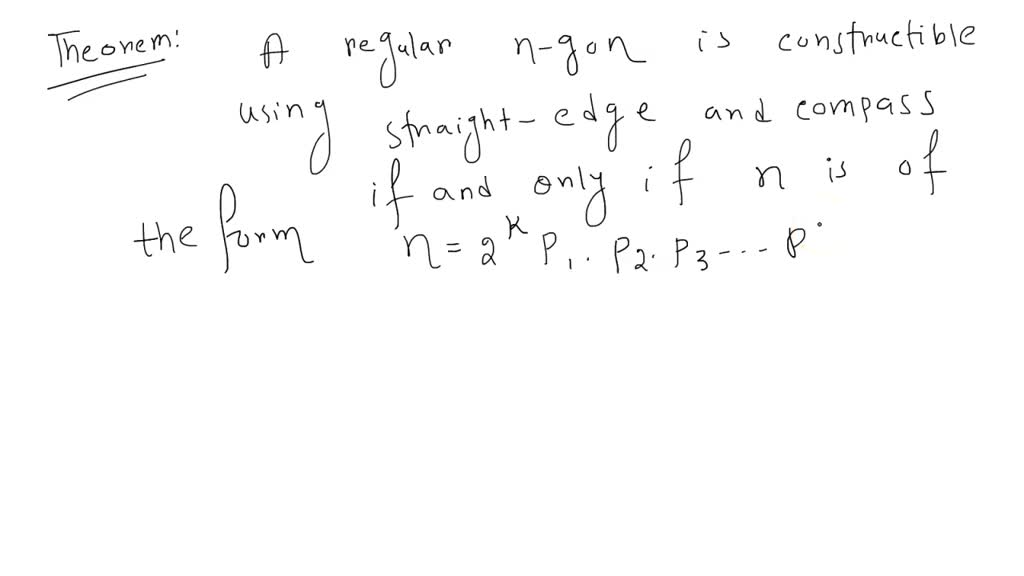 Theorem: A regular n-gon is constructible
using straight-edge and compass
if and only if n is of
the form n = 2^k P_1 . P_2 . P_3 --- P